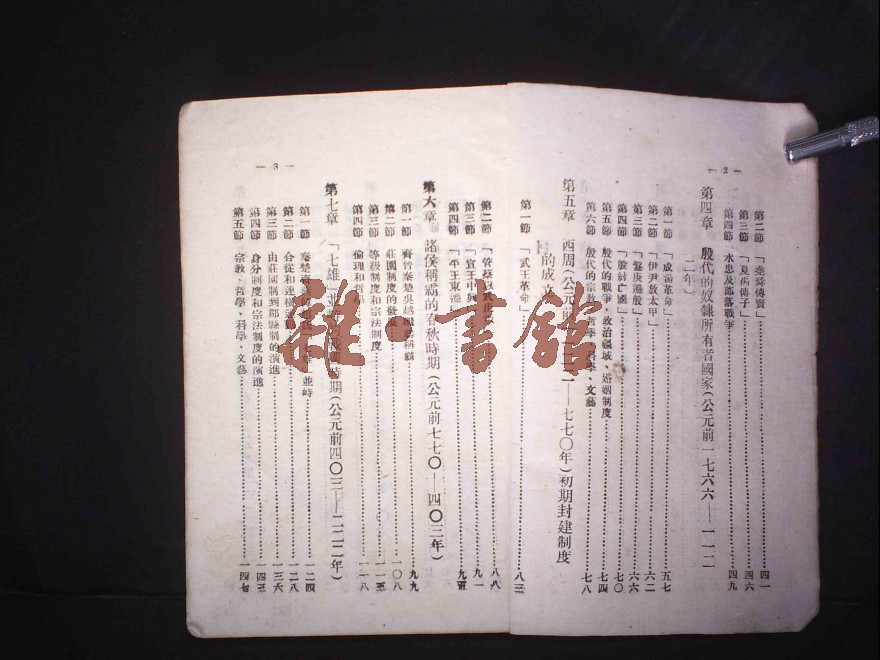 — 2 —
第二節 「堯舜傳賢」 四一
第三節 「夏禹傳子」 四六
第四節 水患及部落戰爭 四九
第四章 殷代的奴隸所有者國家(公元前一七六六——一一二
二年)
第一節 「成湯革命」 五七
第二節 「伊尹放太甲」 六二
第三節 「盤庚遷殷」 六六
第四節 「殷紂亡國」 七〇
第五節 殷代的戰爭、政治疆域、婚姻制度 七四
第六節 殷代的宗教、哲學、科學、文藝 七八
第五章 西周(公元前一一二二——七七〇年)初期封建制度
的成立
第一節 「武王革命」 八三
— 3 —
第二節 「管蔡 武庚 八八
第三節 「宣王中興 九一
第四節 「平王東遷 九五
第六章 諸侯稱霸的春秋時期(公元前七七〇——四〇三年)
第一節 齊晉秦楚吳越 稱霸 九九
第二節 莊園制度的發展 一〇八
第三節 等級制度和宗法制度 一一五
第四節 倫理和哲學 一一八
第七章 「七雄」並 時期(公元前四〇三——二二二年)
第一節 秦楚 並峙 一二四
第二節 合從和連橫 一二八
第三節 由莊園制到郡縣制的演進 一三六
第四節 身分制度和宗法制度的演進 一四三
第五節 宗教、哲學、科學、文藝 一四七
雜·書館